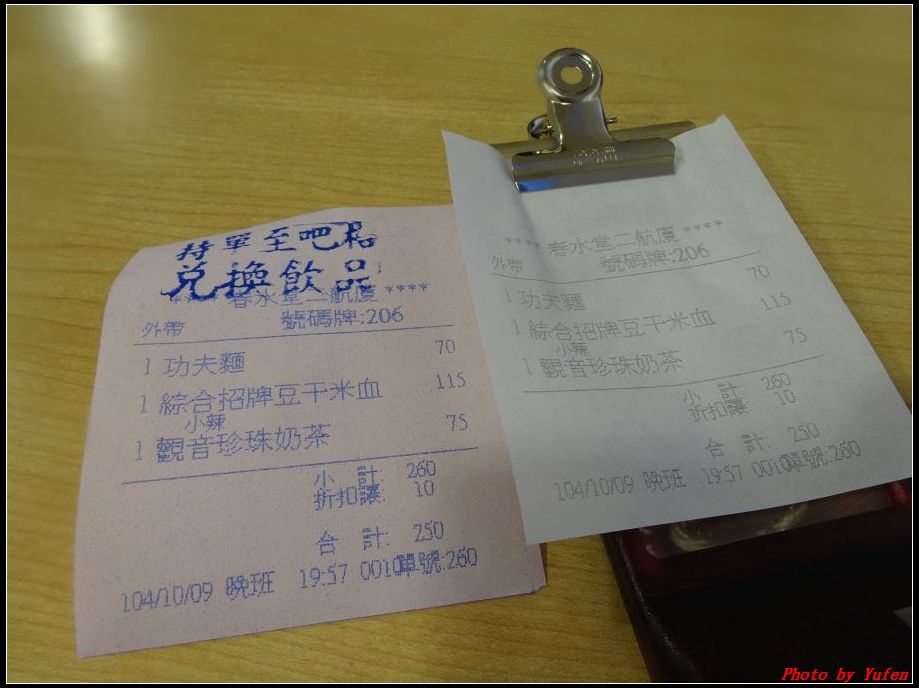 持單至吧檯
兌換飲品
**** 春水堂二航廈 ****
外帶 號碼牌:206
1 功夫麵 70
1 綜合招牌豆干米血 115
小辣
1 觀音珍珠奶茶 75
小 計: 260
折扣讓 10
合 計: 250
104/10/09 晚班 19:57 0010單號:260
**** 春水堂二航廈 ****
外帶 號碼牌:206
1 功夫麵 70
1 綜合招牌豆干米血 115
小辣
1 觀音珍珠奶茶 75
小 計 260
折扣讓 10
合 計: 250
104/10/09 晚班 19:57 0010單號:260
Photo by Yufen